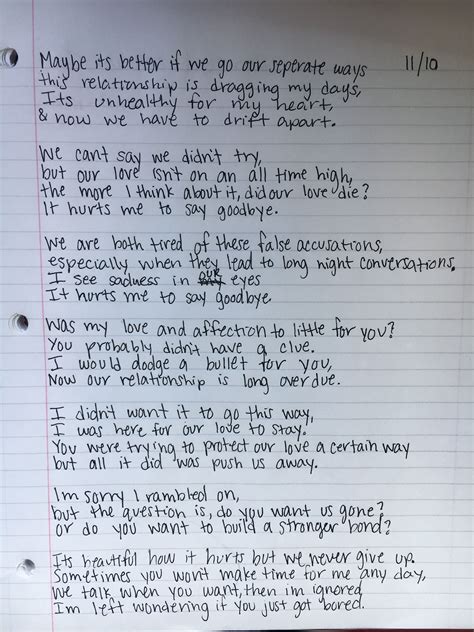 Maybe its better if we go our seperate ways 11/10
this relationship is dragging my days,
Its unhealthy for my heart,
& now we have to drift apart.
We cant say we didn't try,
but our love isn't on an all time high,
the more I think about it, did our love die?
It hurts me to say goodbye.
We are both tired of these false accusations,
especially when they lead to long night conversations.
I see sadness in our eyes
It hurts me to say goodbye
Was my love and affection to little for you?
You probably didn't have a clue.
I would dodge a bullet for you,
Now our relationship is long over due.
I didn't want it to go this way,
I was here for our love to stay.
You were trying to protect our love a certain way
but all it did was push us away.
Im sorry I rambled on,
but the question is, do you want us gone?
or do you want to build a stronger bond?
Its beautiful how it hurts but we never give up.
Sometimes you won't make time for me any day,
we talk when you want, then im ignored
Im left wondering if you just got bored.